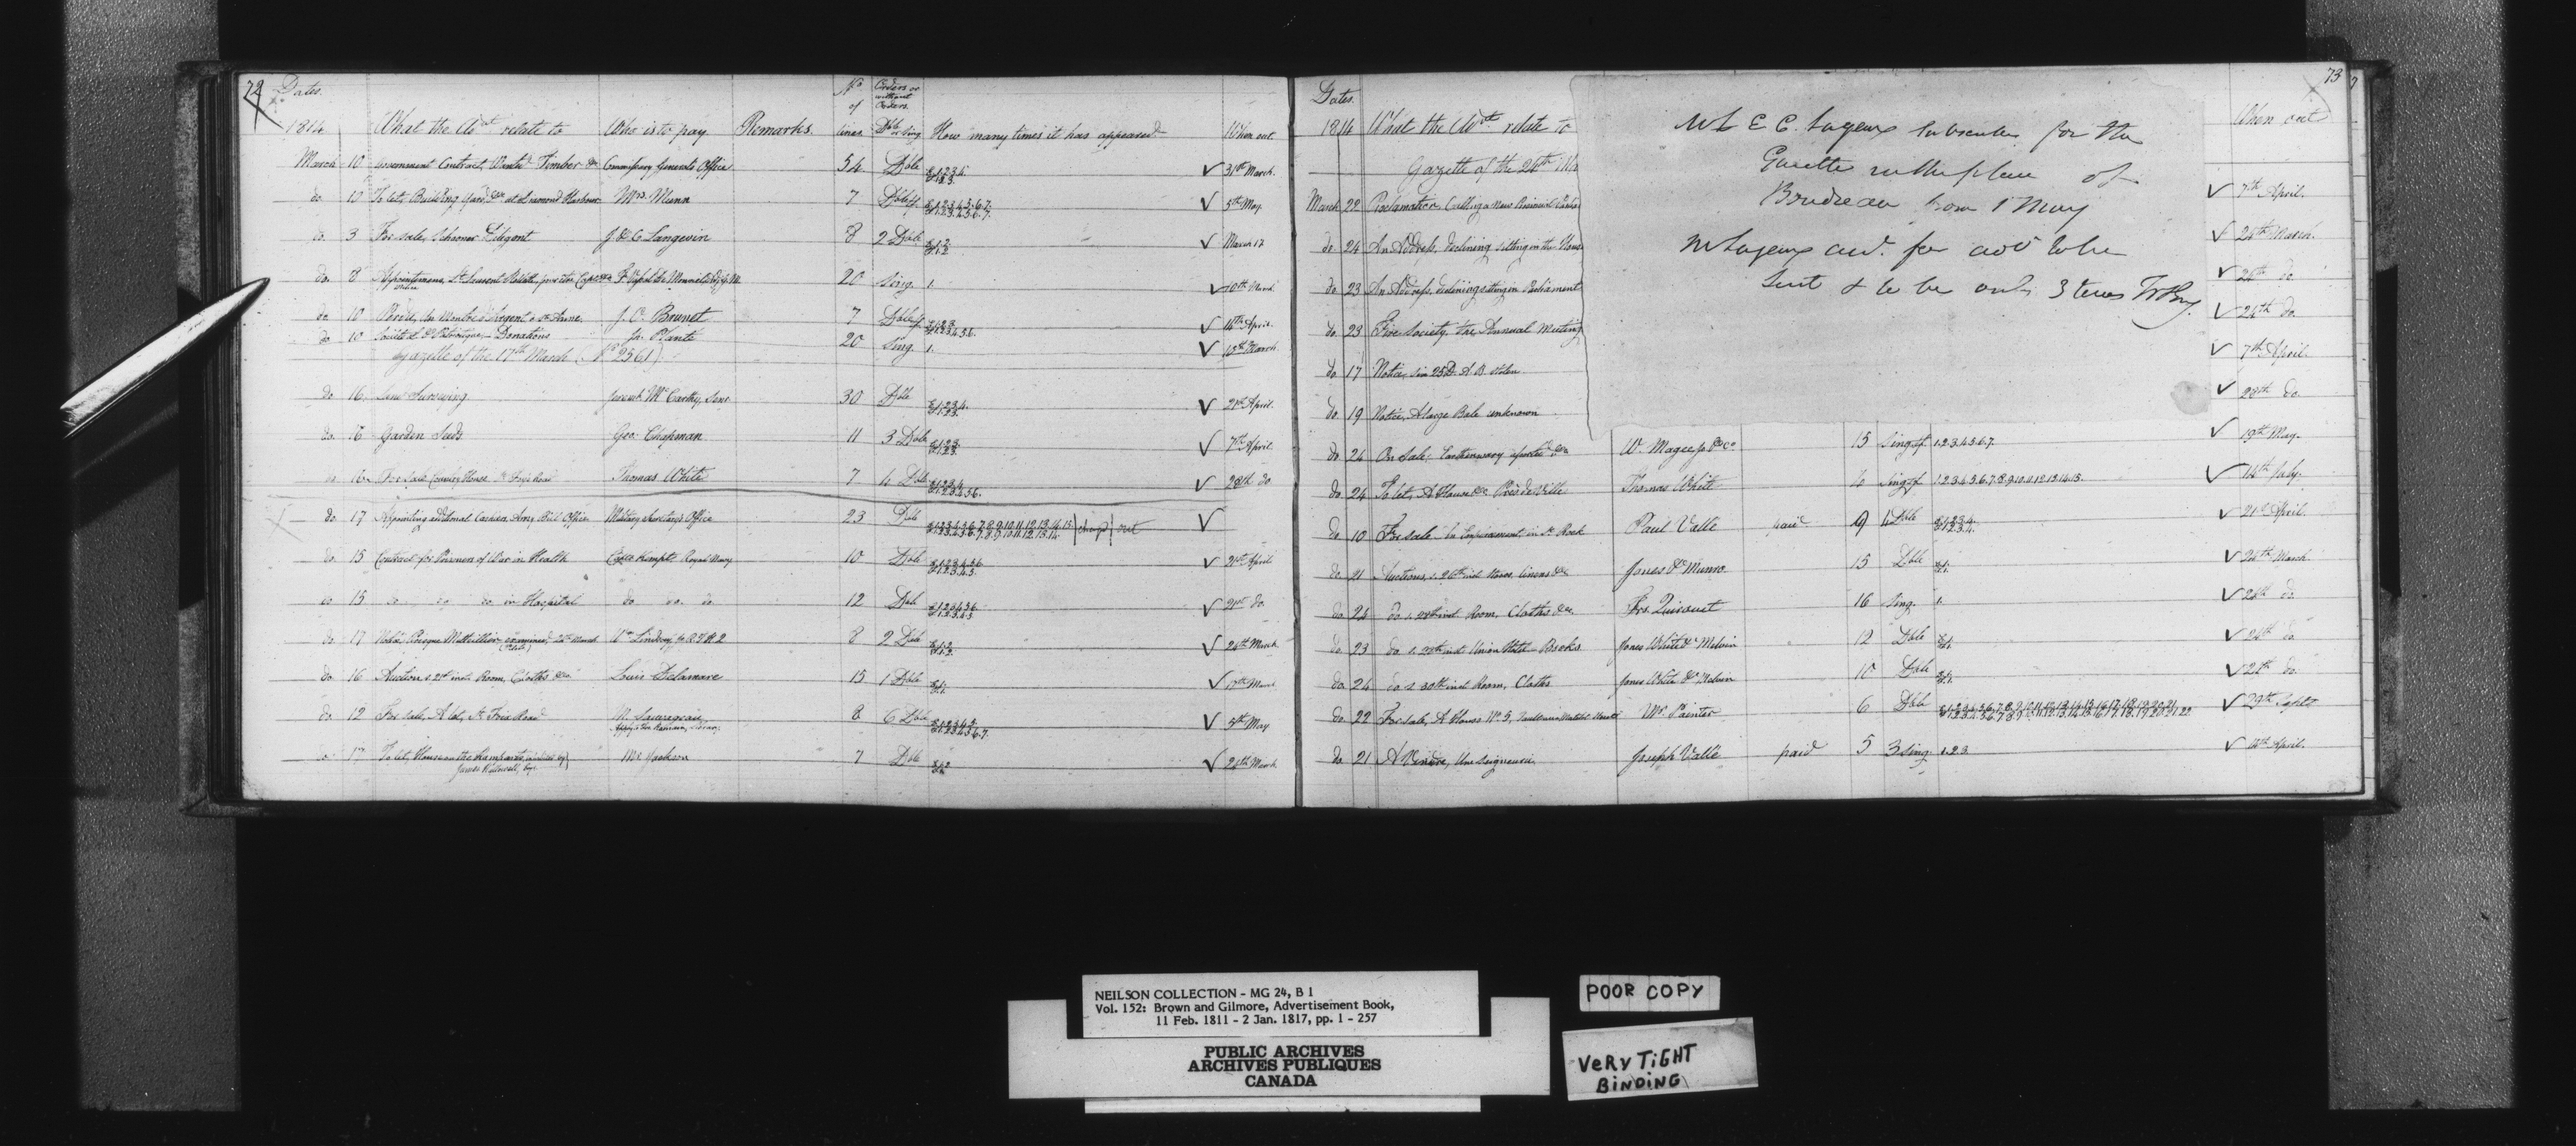 72 Dates.
1814 What the Adt relate to Who is to pay Remarks. No of lines Orders or without Orders. Dble or Sing. How many times it has appeared When out
March 10 Government Contract, Wanted Timber &c Commissary Generals Office 54 Dble E.1.2.3.4. F.1.2.3. ✓ 31st March.
do 10 To let, Building Yard &c at Diamond Harbour Mrs. Munn 7 Dble E.1.2.3.4.5.6.7. F.1.2.3.4.5.6.7. ✓ 5th May
do. 3 For sale, Schooner Diligent J. & C Langevin 8 2 Dble E.1.2. F.1.2 ✓ March 17
do. 8 20 Sing. 1. ✓ 10th March
do 10 Perdu, une Montre d'Argent a Ste Anne. J. O. Brunet 7 Dble ✓ 14th April.
do 10 Donations Jh. Plante 20 Sing. 1. ✓ 10th March
Gazette of the 17th March (No 2561).
do 16 Land Surveying Jeremh. McCarthy, Senr. 30 Dble E.1.2.3.4. F.1.2.3. ✓ 21st April.
do. 16 Garden Seeds Geo: Chapman 11 3 Dble E.1.2.3. F.1.2.3. ✓ 7th April
do 16 For sale Country House St. Foix Road Thomas White 7 4 Dble ✓ 28th do
do. 17 Appointing additional Cashier, Army Bill Office Military Secretary's Office 23 Dble E.1.2.3.4.5.6.7.8.9.10.11.12.13.14.15. F.1.2.3.4.5.6.7.8.9.10.11.12.13.14. out ✓
do. 15 Contract for Prisoners of War in Health Royal Navy 10 Dble E.1.2.3.4.5.6 F.1.2.3.4.5. ✓ 21st April
do 15 do do do in Hospital do do. do 12 Dble ✓ 21st do.
do. 17 Wm Lindsay 8 2 Dble E.1.2. F.1.2. ✓ 24th March
do. 16 Auction s. 21st inst. Room, Cloths &c. Louis Delamare 15 1 Dble E.1. F.1. ✓ 17th March
do 12 For sale, A lot, St. Foix Road 8 6 Dble ✓ 5th May
do. 17 To let, House on the Ramparts Mr. Jackson 7 Dble E.1.2 ✓ 24th March
73
Dates.
1814 What the Adts. relate to When out
Gazette of the 24th Mar
March 22 Proclamation, Calling a New Provincial ✓ 7th April.
do 24 An Address, declining sitting in the House ✓ 24th March.
do 23 An Address, declining sitting in Parliament ✓ 24th do.
do 23 Fire Society, the Annual Meeting ✓ 24th do.
do 17 Notice, stolen ✓ 7th April.
do 19 Notice, A large Bale unknown ✓ 28th do.
do 24 On Sale, Earthenware W. Magee & Co. 15 Sing. 1.2.3.4.5.6.7. ✓ 19th May.
do 24 To let, A House &c. Près de Ville Thomas White 6 Sing. 1.2.3.4.5.6.7.8.9.10.11.12.13.14.15. ✓ 14th July.
do 10 For sale in St. Rock Paul Vallé paid 9 4 Dble E.1.2.3.4. F.1.2.3.4. ✓ 21st April.
do 21 Auctions, s. 26th inst. Stores, linens &c. Jones & Munro. 15 Dble E.1. F.1. ✓ 24th March
do 24 do s. inst. Room, Cloths &c. Frs. Quirouet 16 Sing. 1. ✓ 24th do
do 23 do s. inst. Union Hotel, Books Jones White & Melvin 12 Dble E.1. F.1. ✓ 24th do
do 24 do s. 30th inst Room, Cloths Jones White & Melvin 10 Dble E.1. F.1. ✓ 24th do.
do 22 For sale, A House No 5, Mr. Painter 6 Dble ✓ 29th Septr
do 21 A Vendre, Une Seigneurie. Joseph Vallé paid 5 3 Sing. 1.2.3 ✓ 14th April.
Mr L E C. Lagueux Subscriber for the
Gazette in the place of
Boudreau from 1 May
Mr Lagueux adv. for advt to be
Sent & to be only 3 times
NEILSON COLLECTION - MG 24, B 1
Vol. 152: Brown and Gilmore, Advertisement Book,
11 Feb. 1811 - 2 Jan. 1817, pp. 1 - 257
PUBLIC ARCHIVES
ARCHIVES PUBLIQUES
CANADA
POOR COPY
VERY TiGHT
BiNDiNG